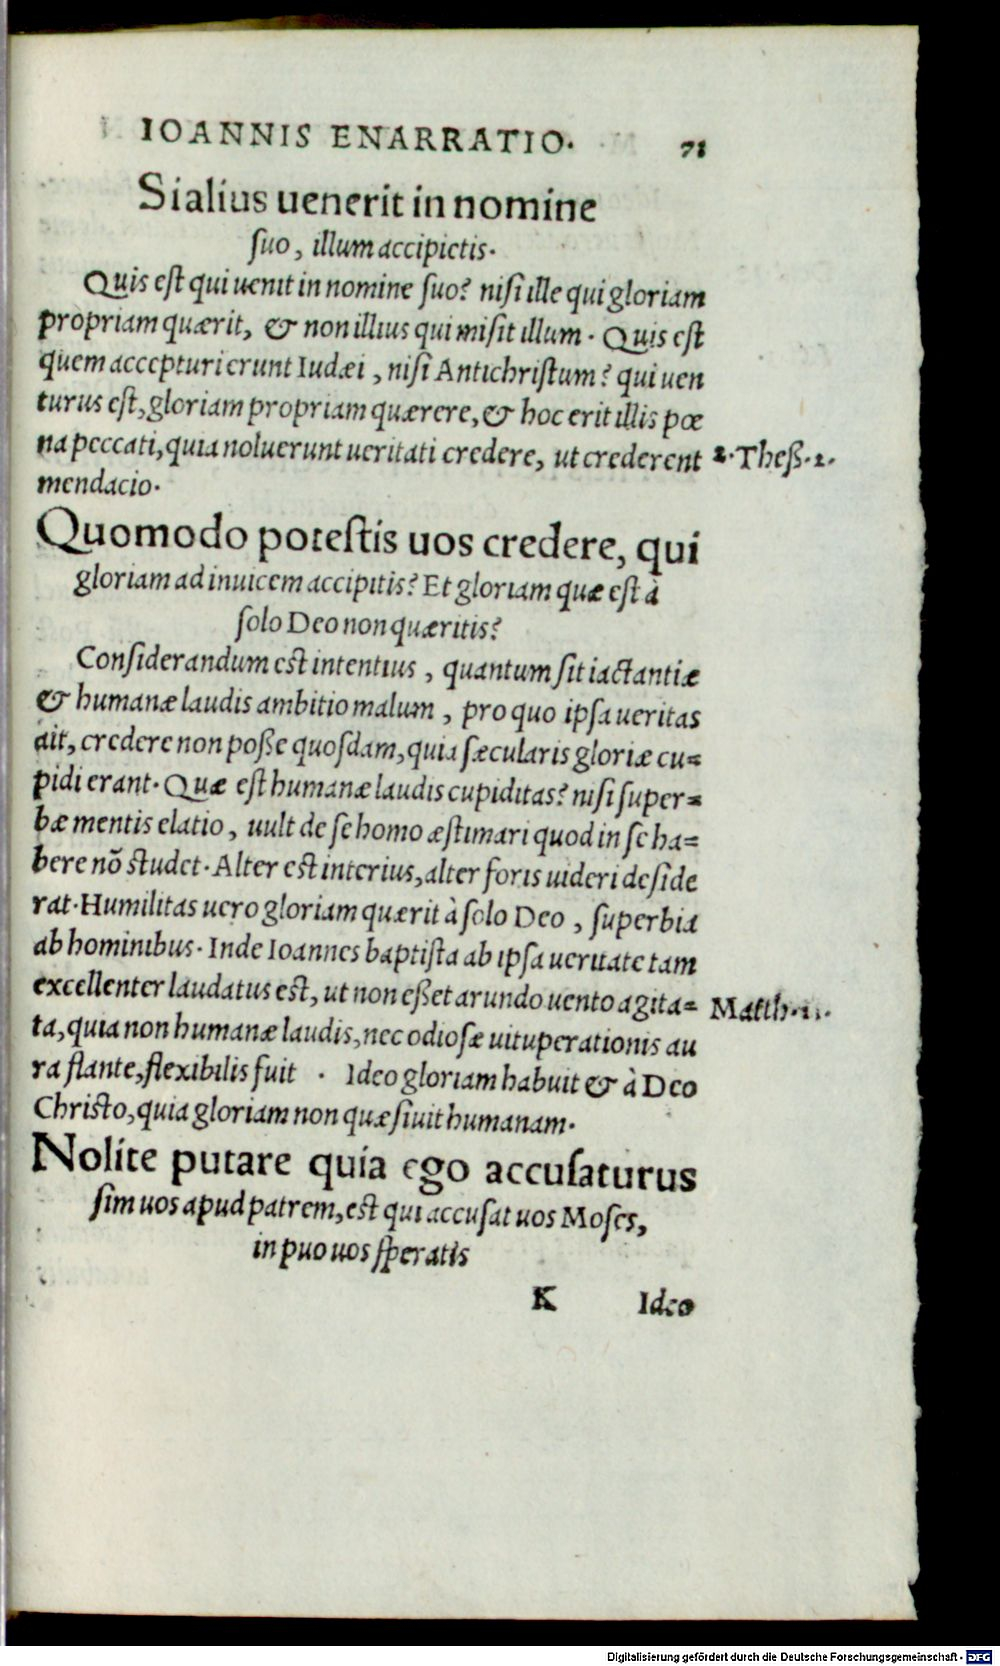 IOANNIS ENARRATIO. 71
Si alius uenerit in nomine
suo, illum accipietis.
Quis est qui uenit in nomine suo? nisi ille qui gloriam
propriam quærit, & non illius qui misit illum. Quis est
quem accepturi erunt Iudæi, nisi Antichristum? qui uen
turus est, gloriam propriam quærere, & hoc erit illis pœ
na peccati, quia noluerunt ueritati credere, ut crederent 2. Theß. 2.
mendacio.
Quomodo potestis uos credere, qui
gloriam ad inuicem accipitis? Et gloriam quæ est à
solo Deo non quæritis?
Considerandum est intentius, quantum sit iactantiæ
& humanæ laudis ambitio malum, pro quo ipsa ueritas
ait, credere non poße quosdam, quia sæcularis gloriæ cu=
pidi erant. Quæ est humanæ laudis cupiditas? nisi super=
bæ mentis elatio, uult de se homo æstimari quod in se ha=
bere nõ studet. Alter est interius, alter foris uideri deside
rat. Humilitas uero gloriam quærit à solo Deo, superbia
ab hominibus. Inde Ioannes baptista ab ipsa ueritate tam
excellenter laudatus est, ut non eßet arundo uento agita= Matth. 11.
ta, quia non humanæ laudis, nec odiosæ uituperationis au
ra flante, flexibilis fuit. Ideo gloriam habuit & à Deo
Christo, quia gloriam non quæsiuit humanam.
Nolite putare quia ego accusaturus
sim uos apud patrem, est qui accusat uos Moses,
in puo uos speratis
K Ideo
Digitalisierung gefördert durch die Deutsche Forschungsgemeinschaft - DFG